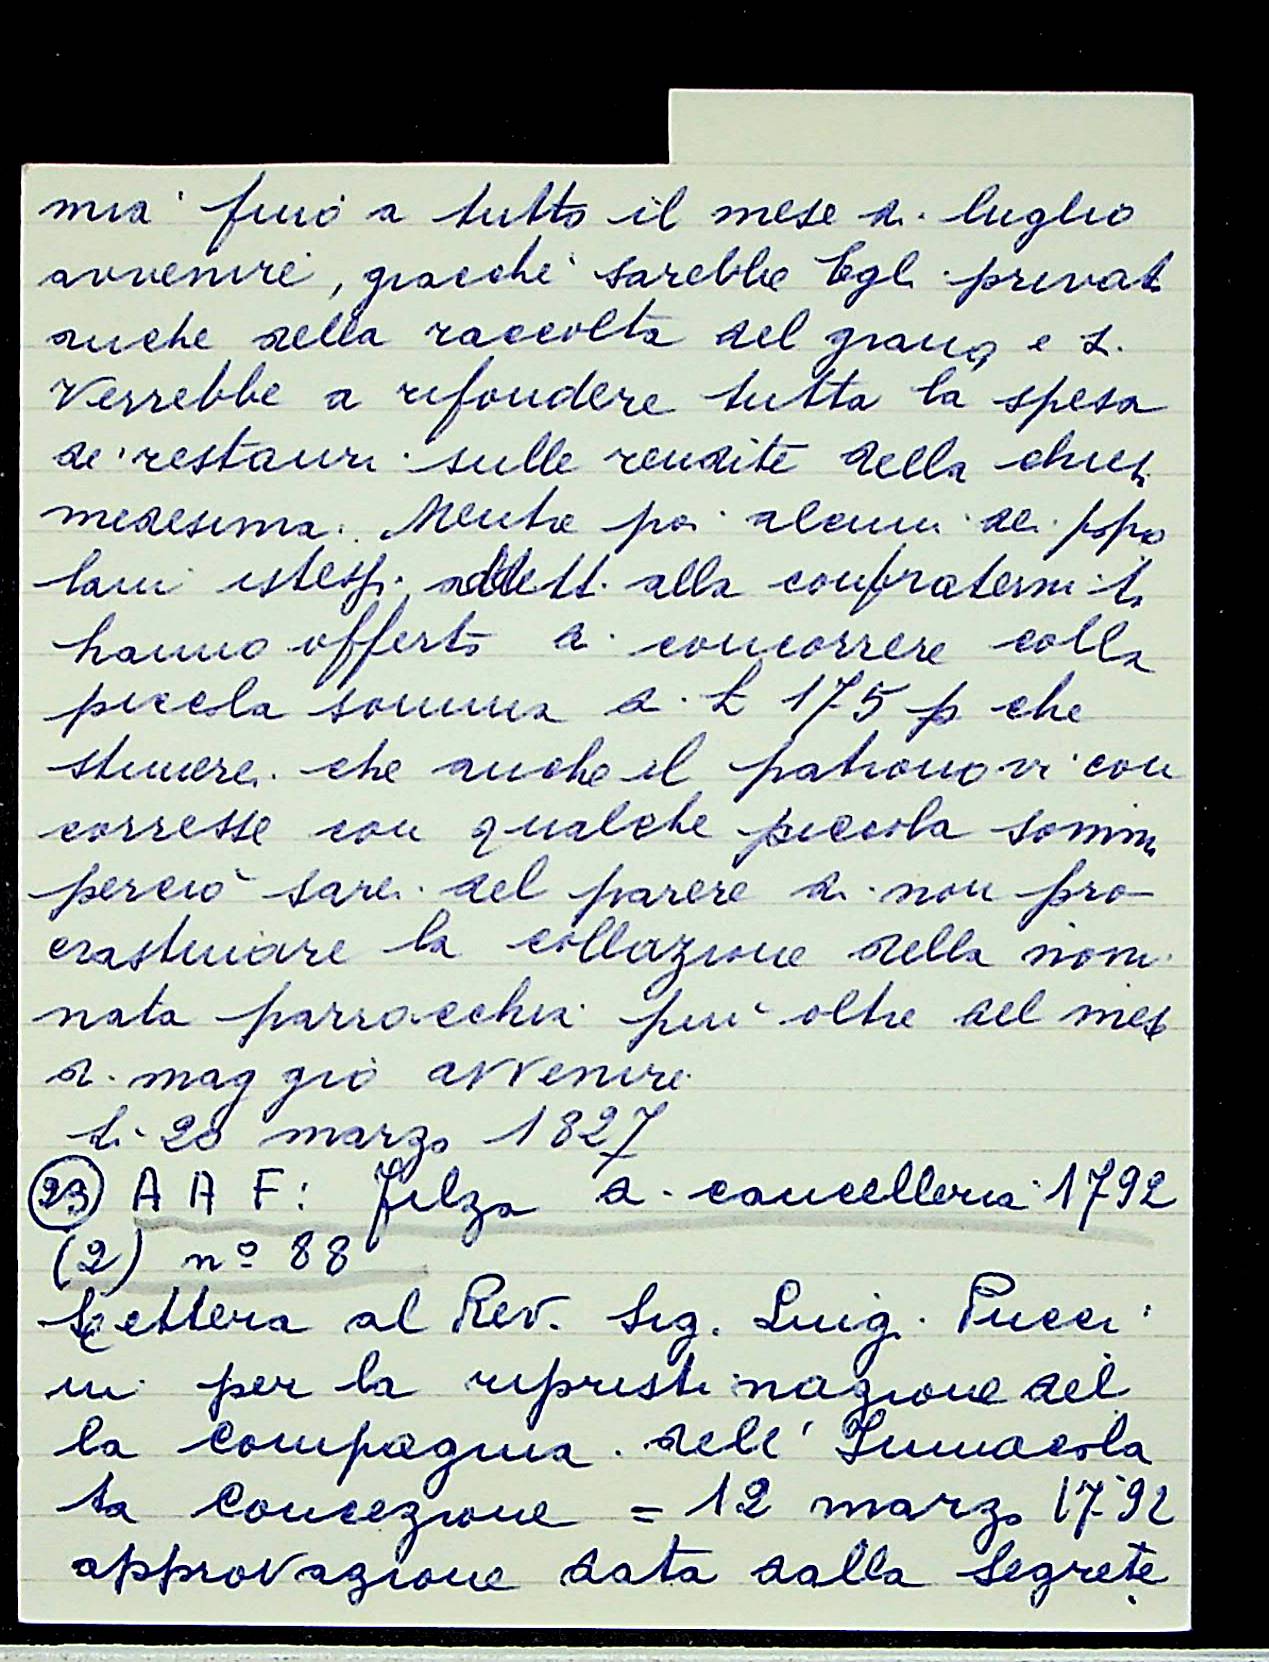 mia fino a tutto il mese di luglio
avvenire, giacché sarebbe Egli privat
anche della raccolta del grano e si
verrebbe a rifondere tutta la spesa
de' restauri sulle rendite della chies
medesima. Mentre poi alcuni dei popo
lani istessi addetti alla confraternit
hanno offerto di concorrere colla
piccola somma di £ 175 p che
stimerei che anche il patrono vi con
corresse con qualche piccola somm
perciò sarei del parere di non pro-
crastinare la collazione della nomi
nata parrocchia più oltre del mese
di maggio avvenire
li 20 marzo 1827
(23) A A F: filza di cancelleria 1792
(2) nº 88
Lettera al Rev. Sig. Luigi Pucci
ni per la ripristinazione del
la compagnia dell' Immacola
ta Concezione = 12 marzo 1792
approvazione data dalla Segrete